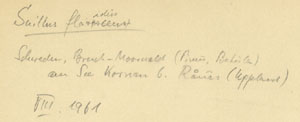 Suillus flavidus
Schweden, Bruch-Moorwald (Pinus, Betula)
am See Kosven b. Rånäs (Uppland)
VIII. 1961